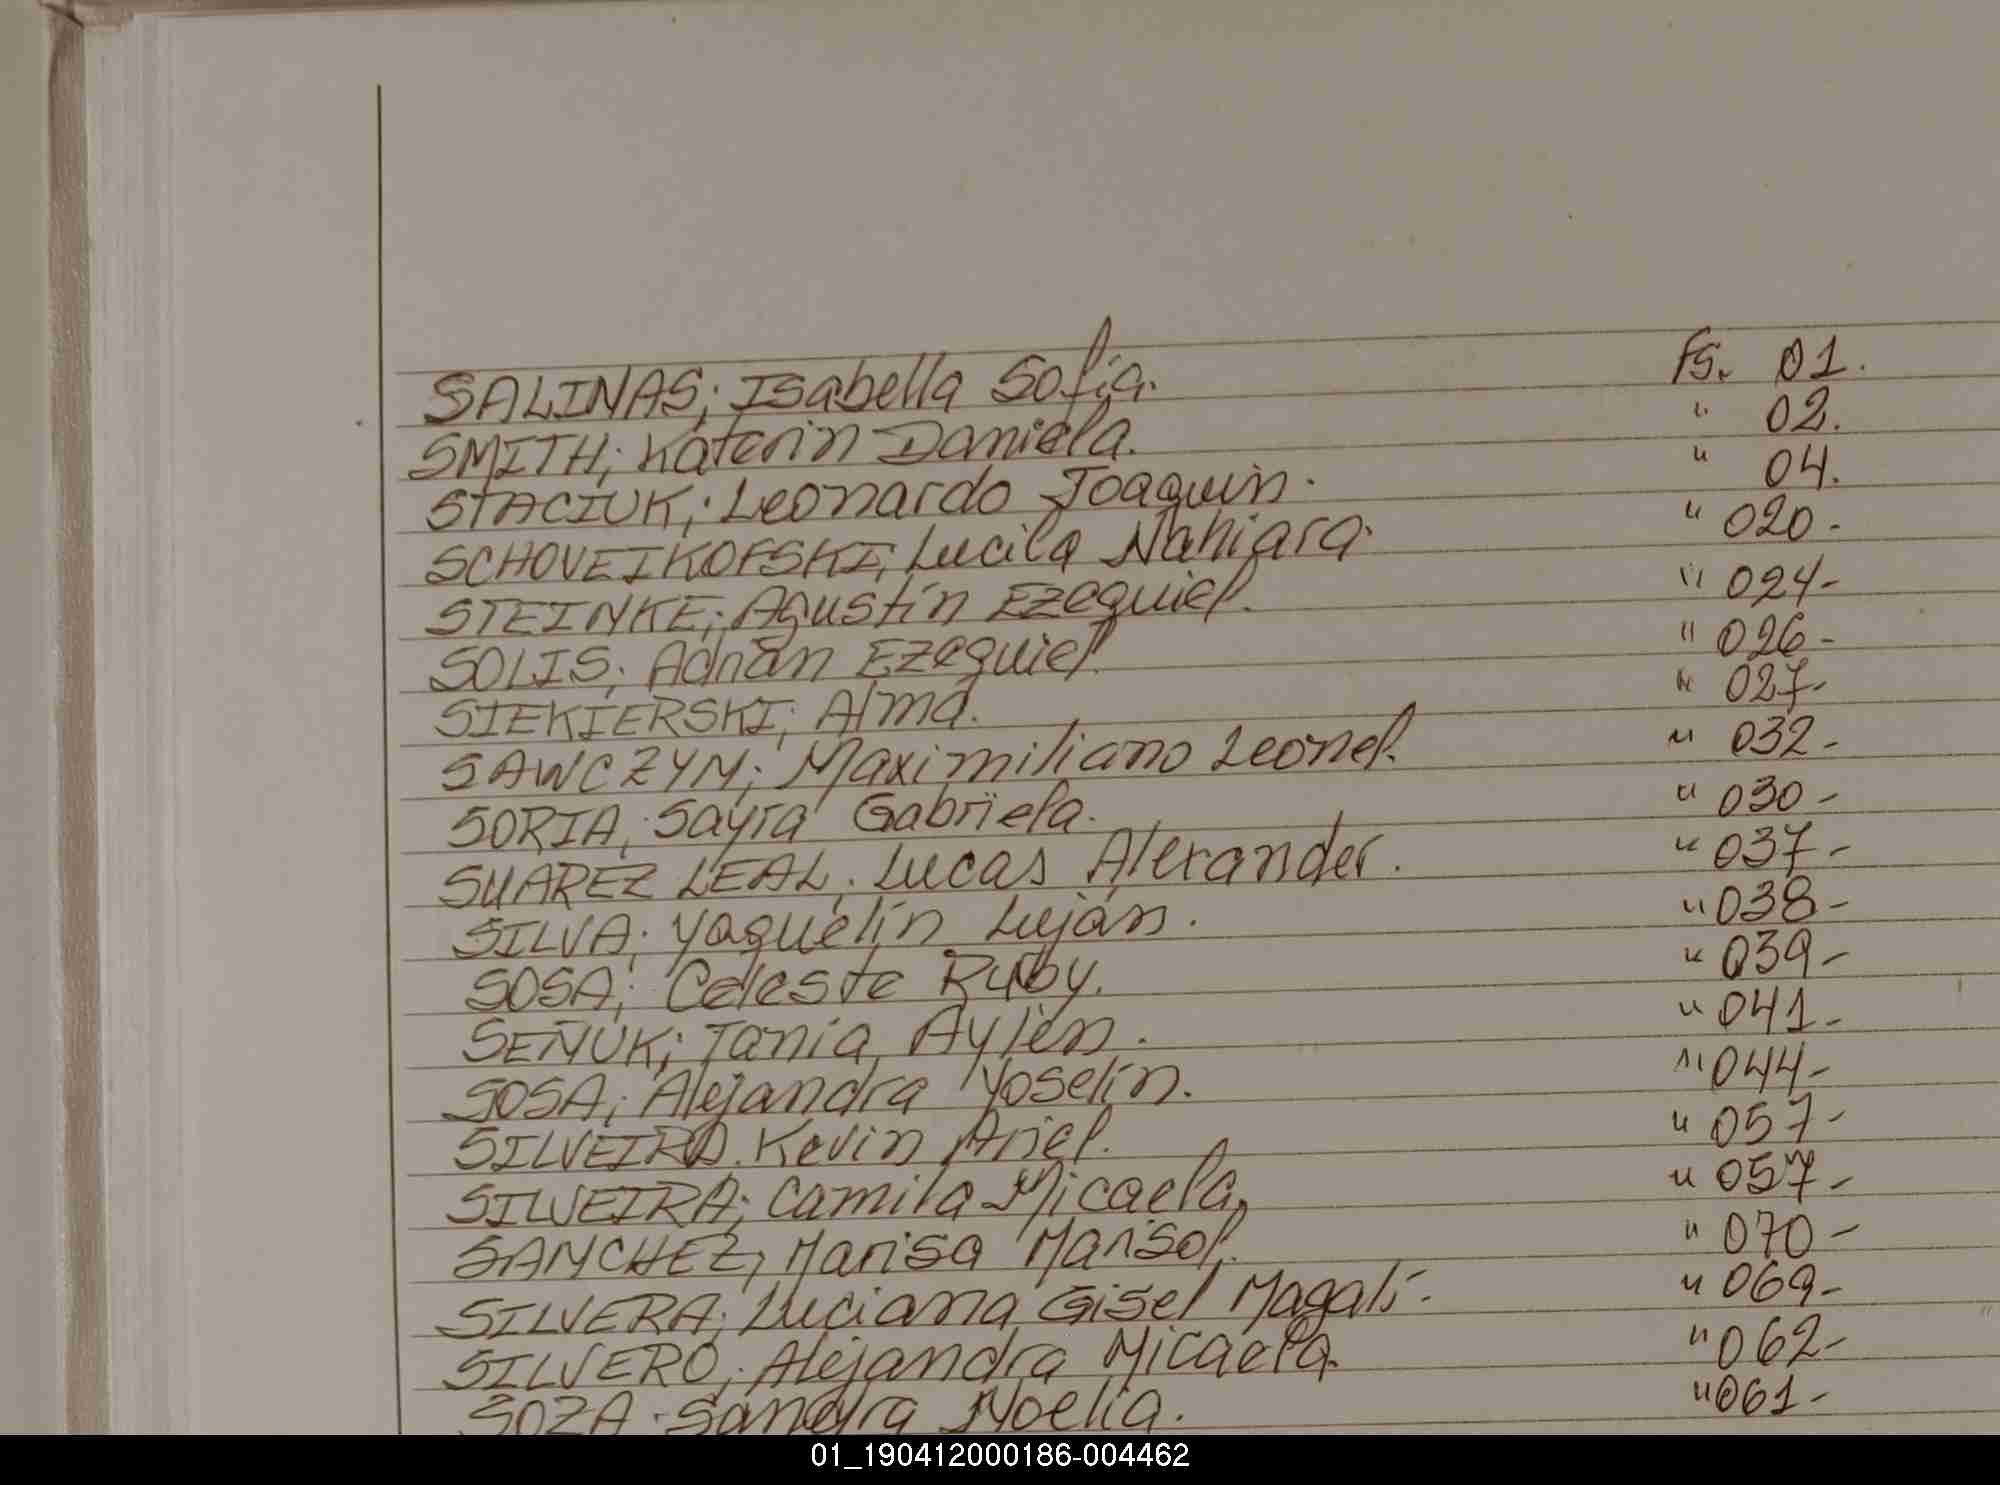 SALINAS; Isabella Sofía. Fs. 01.
SMITH; Katerin Daniela. " 02.
STACIUK; Leonardo Joaquín. " 04.
SCHOVEIKOFSKI; Lucila Nahiara. " 020-
STEINKE; Agustín Ezequiel. " 024-
SOLIS; Adrián Ezequiel. " 026-
SIEKIERSKI; Alma. " 027-
SAWCZYN; Maximiliano Leonel. " 032-
SORIA; Sayra Gabriela. " 030-
SUAREZ LEAL; Lucas Alexander. " 037-
SILVA; Yaquelín Luján. " 038-
SOSA; Celeste Ruby. " 039-
SEÑUK; Tania Aylén. " 041-
SOSA; Alejandra Yoselín. " 044-
SILVEIRA. Kevin Ariel. " 057-
SILVEIRA; Camila Micaela. " 057-
SANCHEZ; Marisa Marisol. " 070-
SILVERA; Luciana Gisel Magalí. " 069-
SILVERO; Alejandra Micaela. " 062-
SOZA. Sandra Noelia. " 061-
01_190412000186-004462